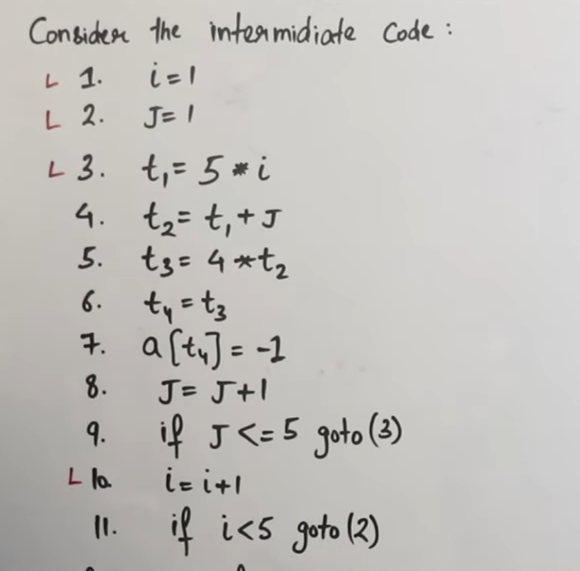 Consider the intermidiate Code :
L 1. i = 1
L 2. J = 1
L 3. t₁ = 5 * i
4. t₂ = t₁ + J
5. t₃ = 4 * t₂
6. t₄ = t₃
7. a[t₄] = -1
8. J = J+1
9. if J <= 5 goto (3)
L 10. i = i+1
11. if i<5 goto (2)